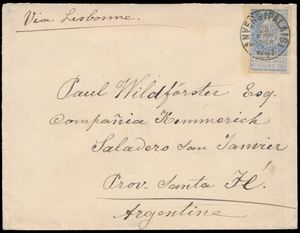 Via Lisbonne.
ANVERS (PALAIS)
Paul Wildförster Esq.
Compañia Kemmerich
Saladero San Javier
Prov. Santa Fé
Argentine